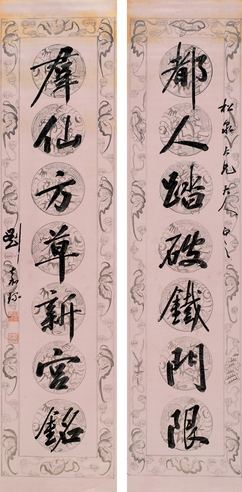 松泉仁兄大人正之
都人踏破鐵門限
羣仙方草新宮銘
劉